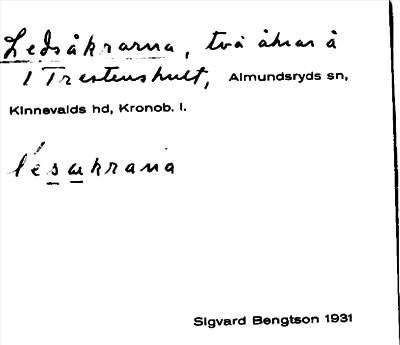 Ledsåkrarna, två åkrar å
1 Trestenshult, Almundsryds sn,
Kinnevalds hd, Kronob. l.
lésækrana
Sigvard Bengtson 1931